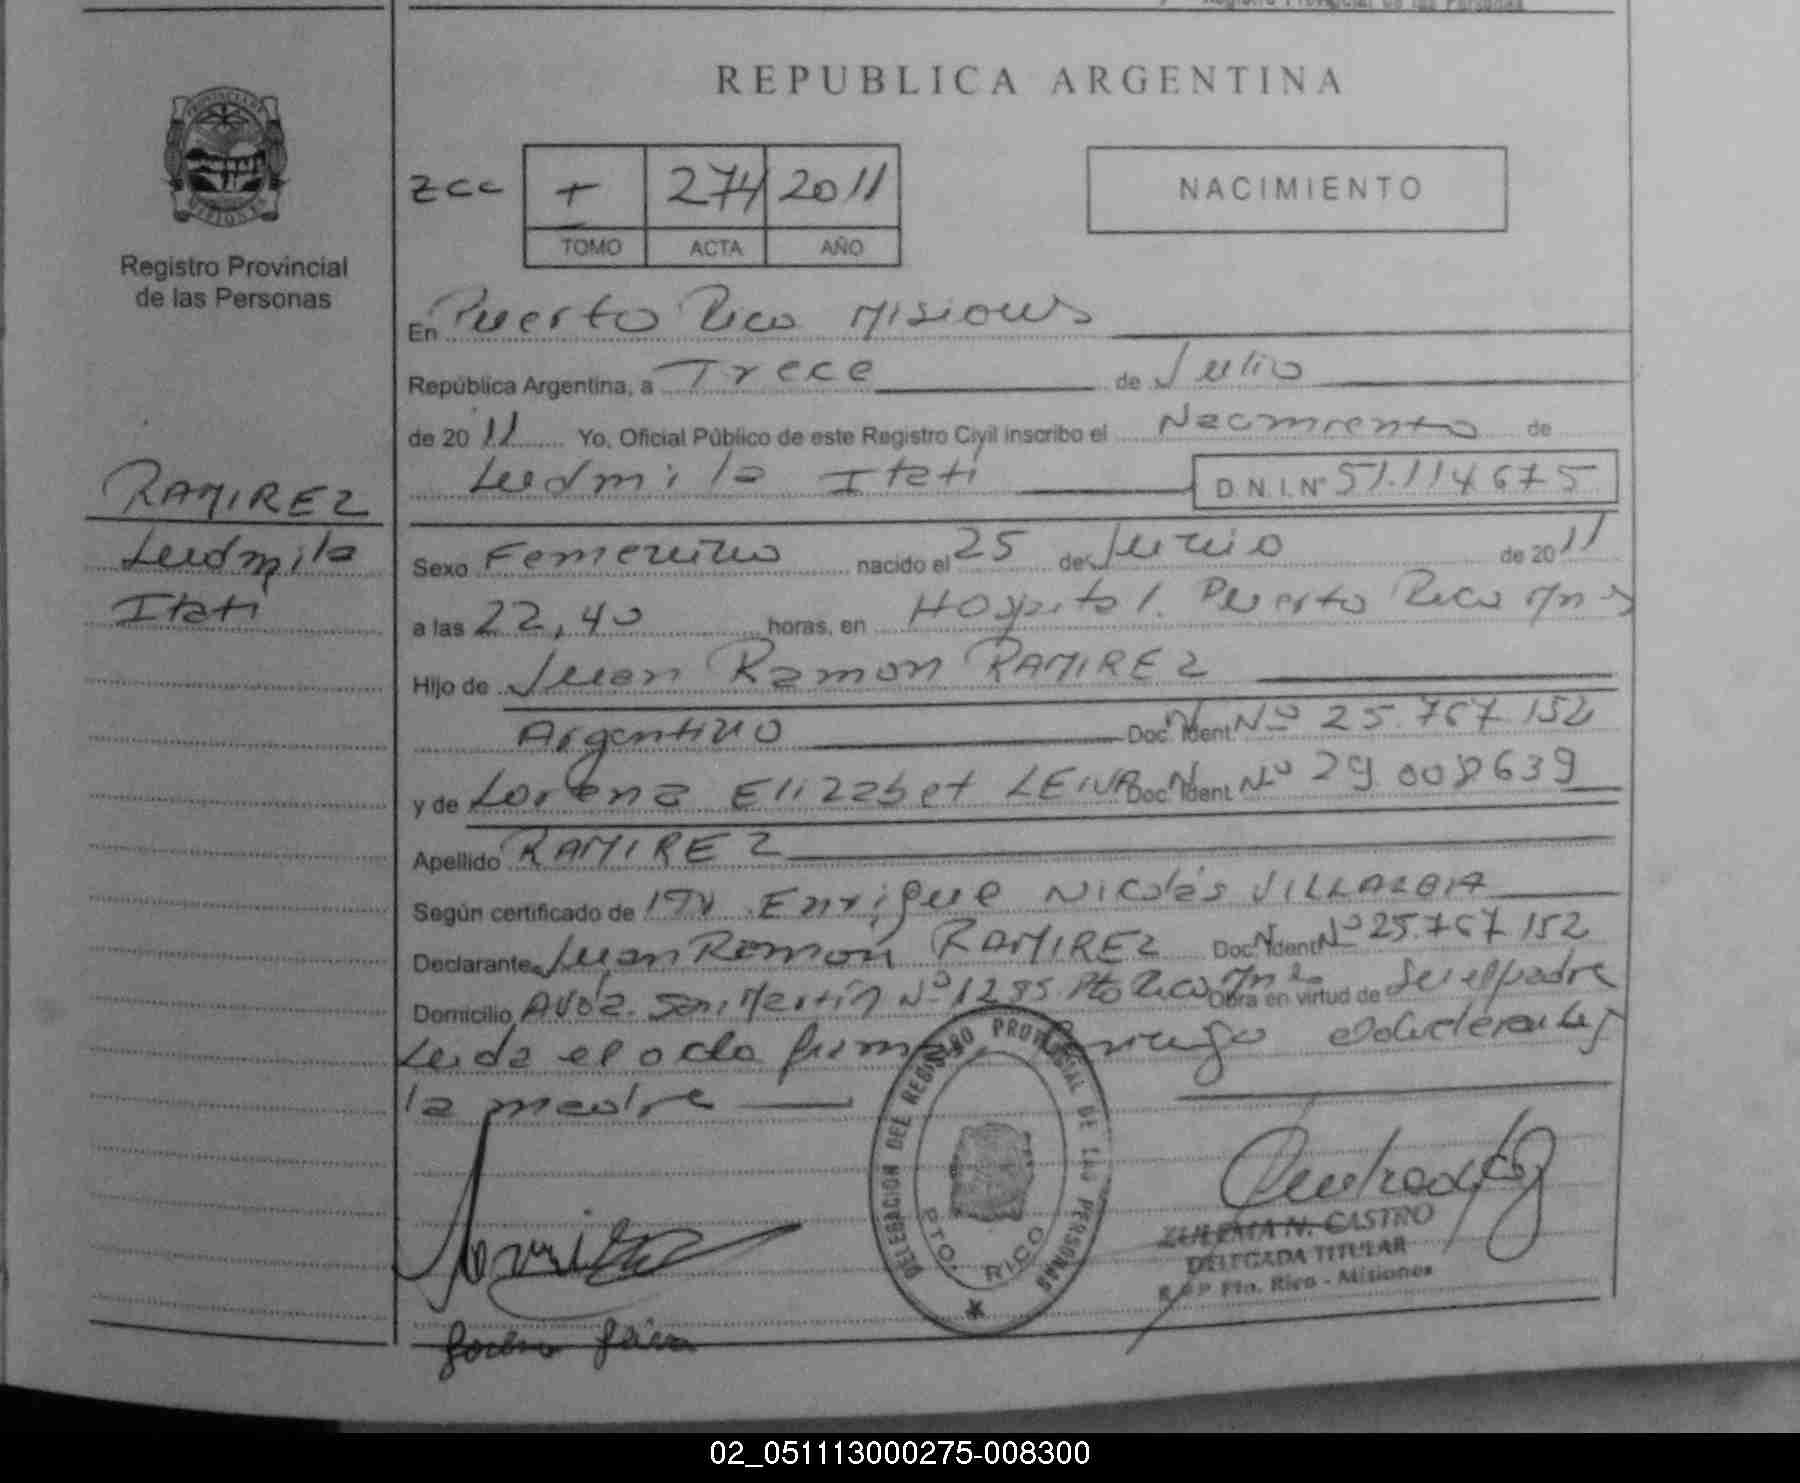 REPUBLICA ARGENTINA
PROVINCIA DE
MISIONES
Registro Provincial
de las Personas
zcc
274 2011
TOMO ACTA AÑO
NACIMIENTO
En Puerto Rico Misiones
República Argentina, a Trece de Julio
de 2011 Yo, Oficial Público de este Registro Civil inscribo el Nacimiento de
Ludmila Itatí D.N.I.Nº 51.114675
RAMIREZ
Ludmila
Itati
Sexo Femenino nacido el 25 de Junio de 2011
a las 22,40 horas, en Hospital. Puerto Rico Mnes
Hijo de Juan Ramon RAMIREZ
Argentino Doc. Ident. Nº 25.767.152
y de Lorena Elizabet LEIVA Doc. Ident. Nº 29.008639
Apellido RAMIREZ
Según certificado de Enrique Nicolás VILLALBA
Declarante Juan Ramón RAMIREZ Doc. Ident. Nº 25.767.152
Domicilio Avda. San Martín Nº 1295 Pto Rico Mnes Obra en virtud de Ser el padre
Leida el acta firma conmigo el declarante y
la madre
DELEGACION DEL REGISTRO PROVINCIAL DE LAS PERSONAS
PTO. RICO
ZULEMA N. CASTRO
DELEGADA TITULAR
R.P.P Pto. Rico - Misiones
02_051113000275-008300